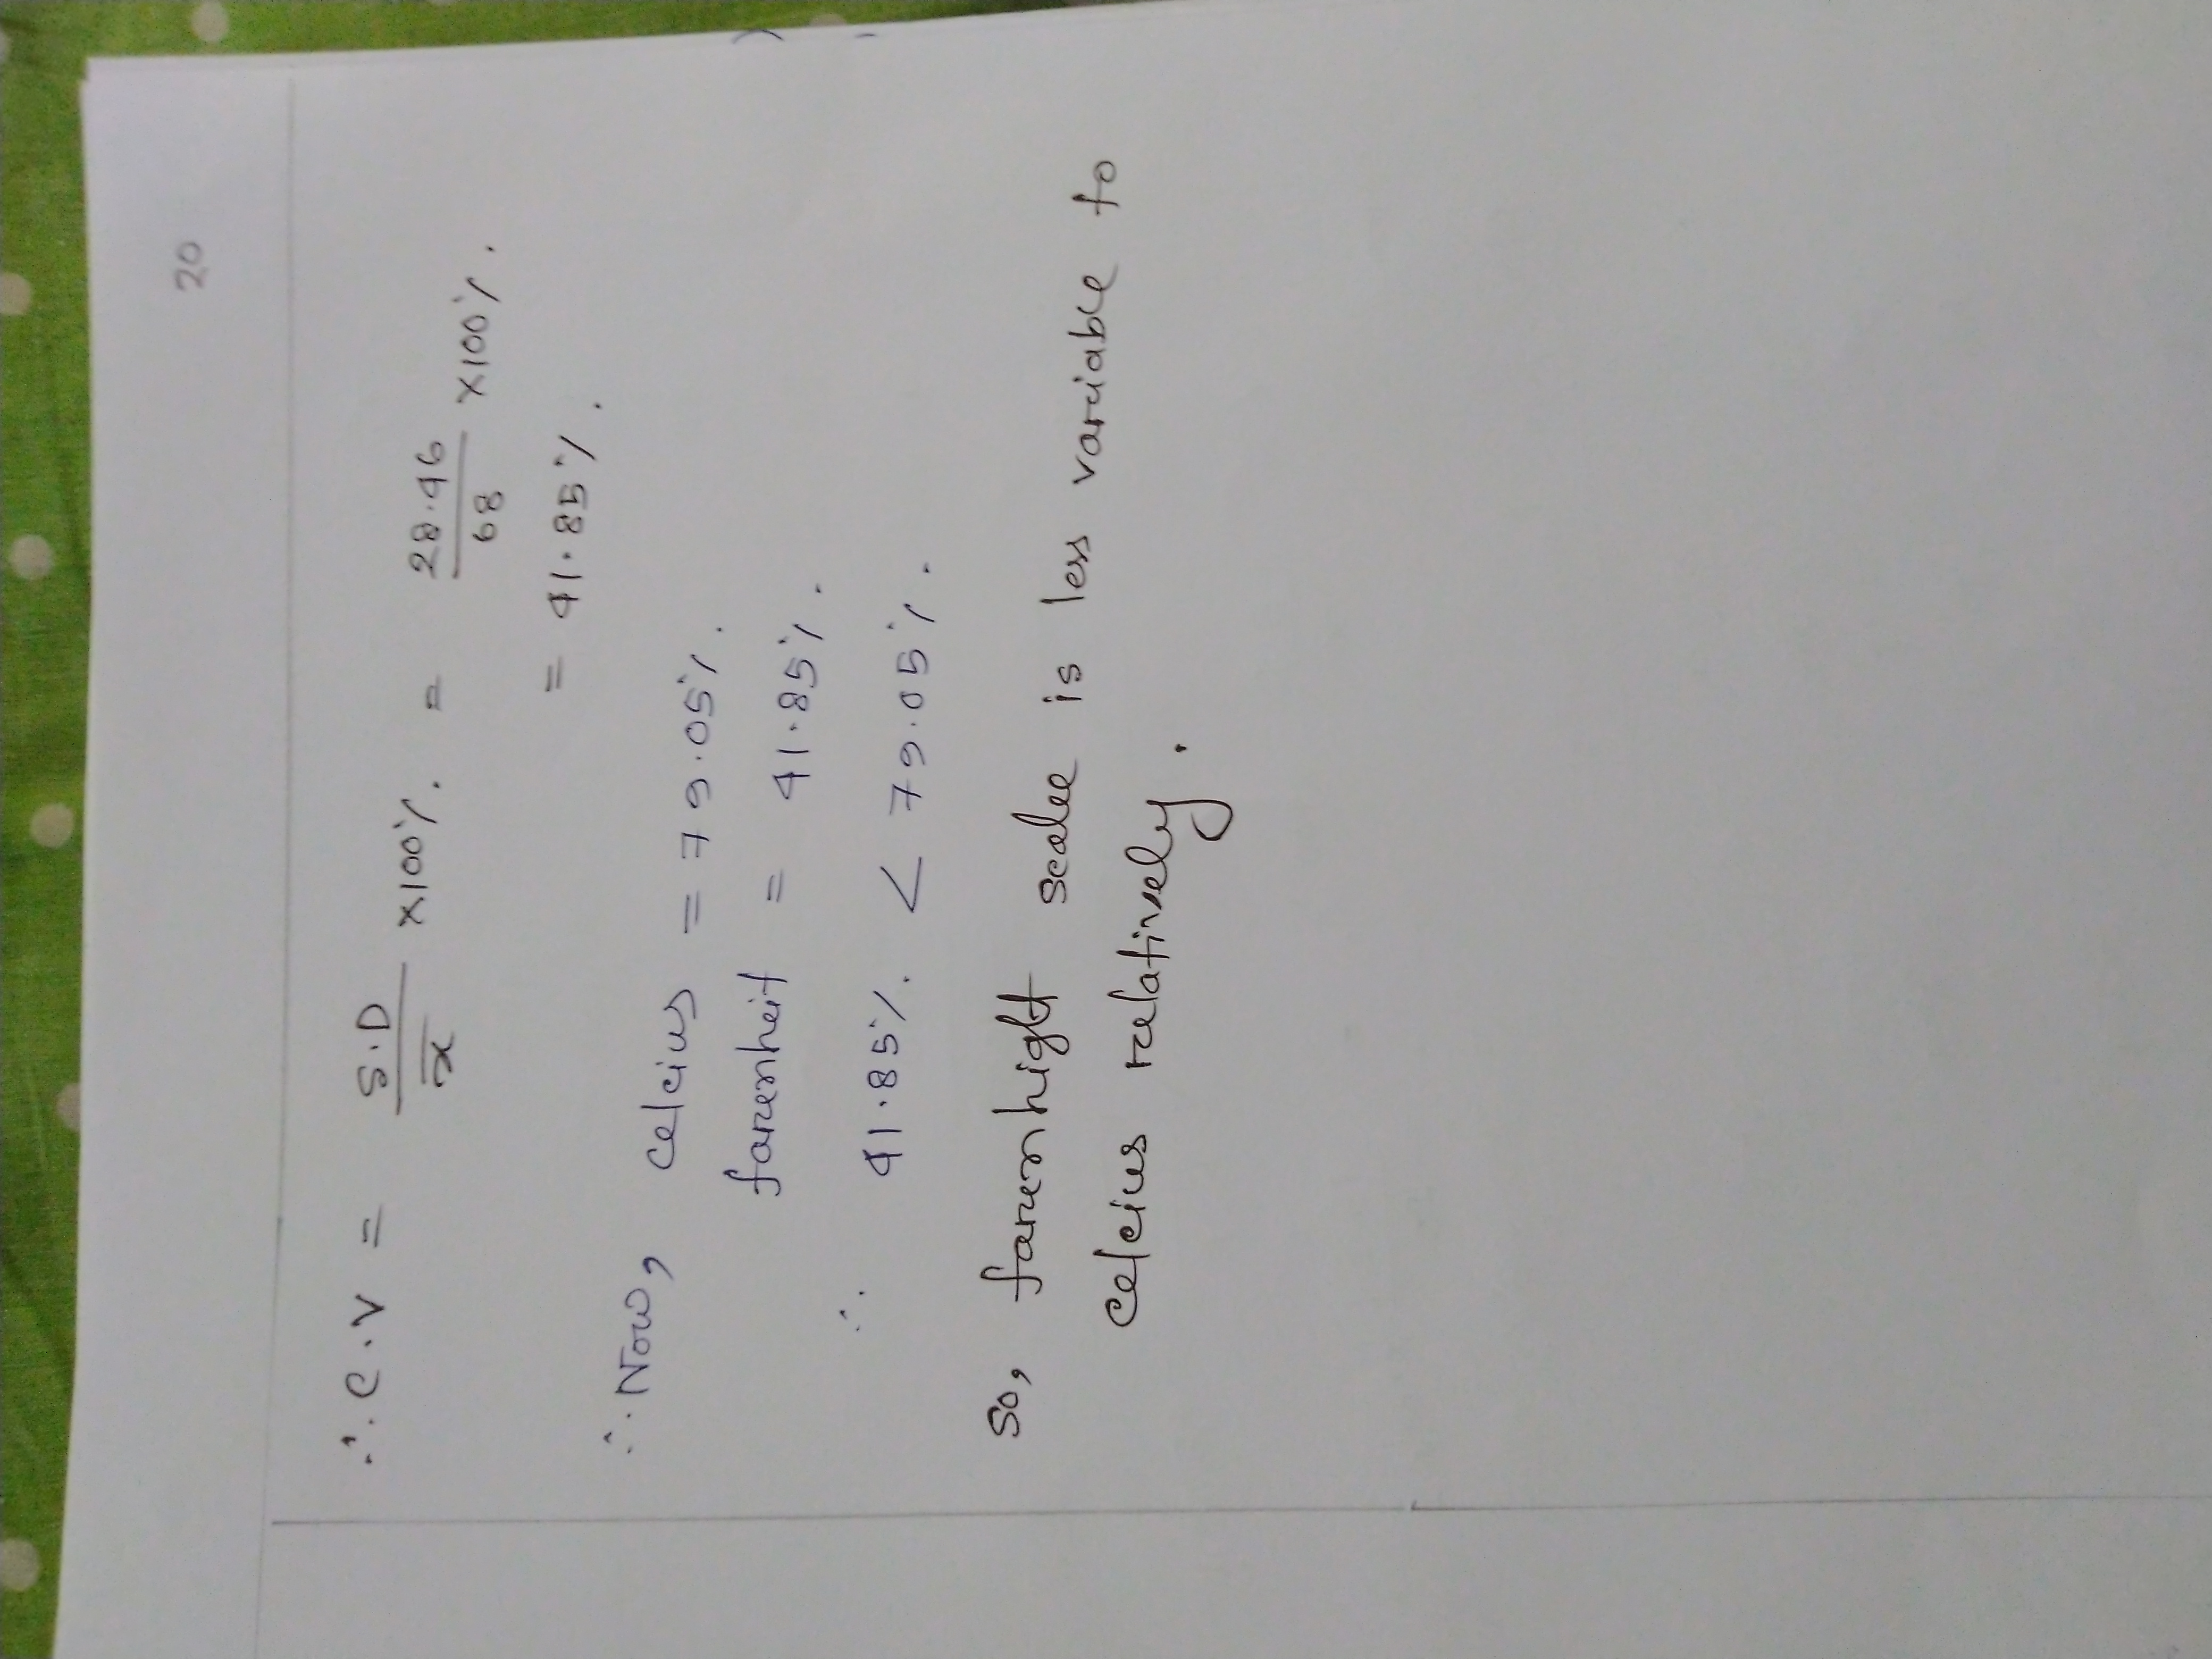 20
∴ C.V = S.D / x̄ ×100%. = 28.46 / 68 ×100%.
= 41.85%.
∴ Now, celcius = 79.05%.
farenheit = 41.85%.
∴ 41.85%. < 79.05%.
So, farenhight scalee is less variable to
celcius relatively.